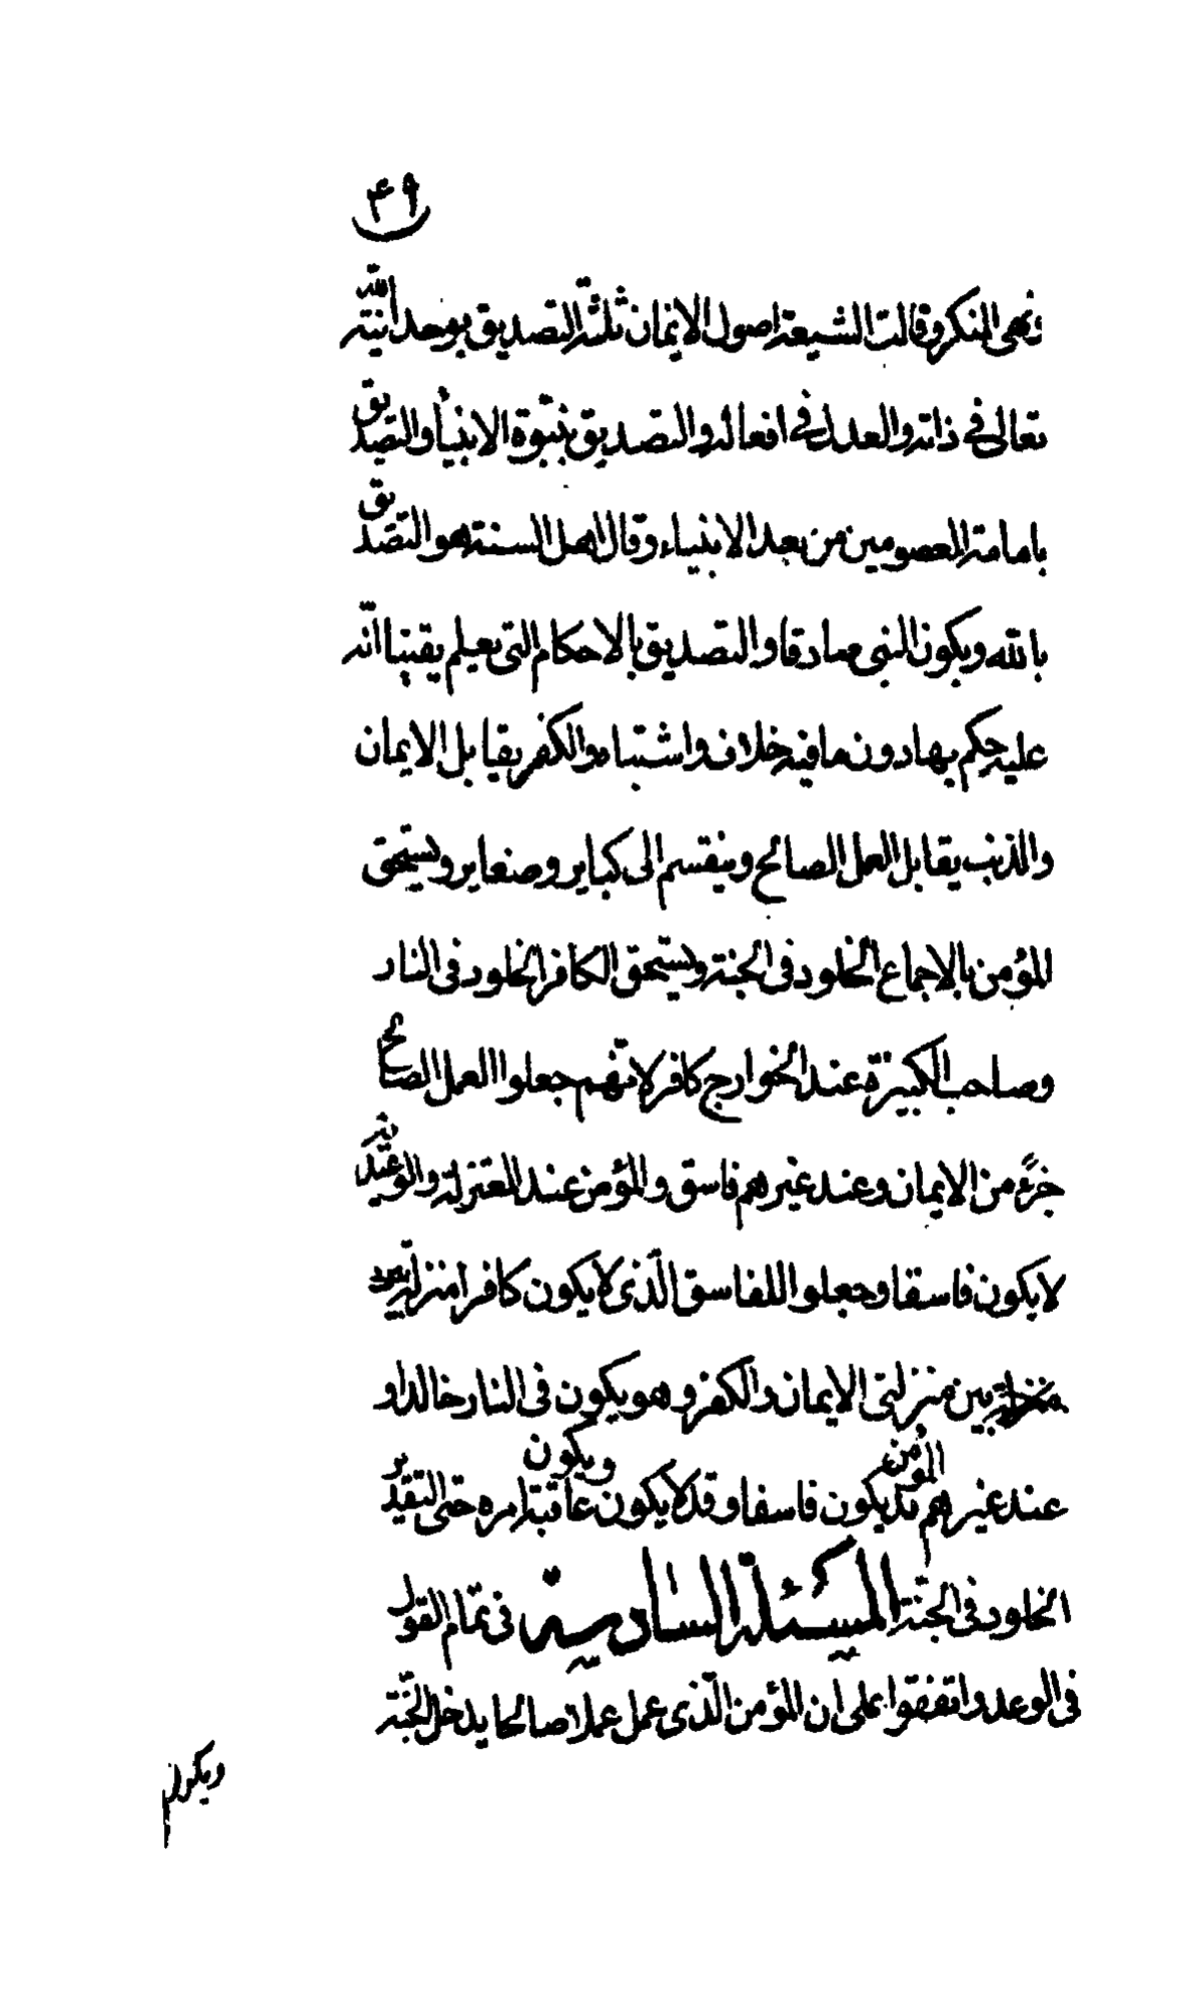 ۴۹
ونهى المنكر وقالت الشيعة اصول الايمان ثلثة التصديق بوحدانية الله
تعالى في ذاته والعدل في افعاله والتصديق بنبوّة الانبيأ والتصديق
بامامة المعصومين من بعد الانبياء وقال اهل السنة هو التصديق
بالله ويكون النبى صادقا والتصديق بالاحكام التى يعلم يقينا انّه
عليه حكم بها دون ما فيه خلاف واشتباه والكفر يقابل الايمان
والذنب يقابل العمل الصالح وينقسم الى كباير وصغاير ويستحق
المؤمن بالاجماع الخلود فى الجنة ويستحق الكافر الخلود فى النار
وصاحب الكبيرة عند الخوارج كافر لانّهم جعلوا العمل الصالح
جزءً من الايمان وعند غيرهم فاسق والمؤمن عند المعتزلة والوعيدية
لا يكون فاسقا وجعلوا للفاسق الّذى لا يكون كافرا منزلة بين
منزلة بين منزلتى الايمان والكفر وهو يكون فى النار خالدا و
عند غيرهم المؤمن قد يكون فاسقا وقد لا يكون ويكون عاقبة امره حتى التقدير
الخلود فى الجنّة المسئلة السادسة فى تمام القول
فى الوعد واتفقوا على ان المؤمن الّذى عمل عملا صالحا يدخل الجنّة
ويكون